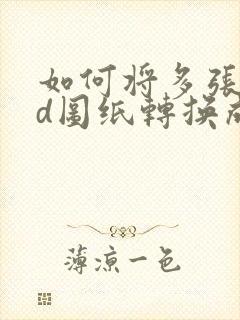 如何将多張
d圖纸轉換成
薄涼一色